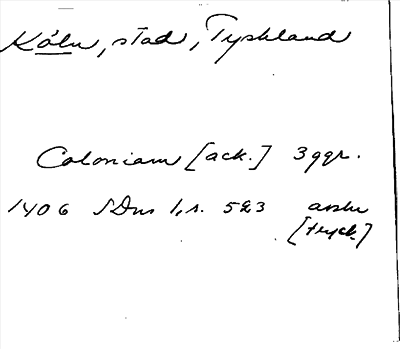 Köln, stad, Tyskland
Coloniam [ack.] 3 ggr.
1406 SDns 1, s. 523 avskr
[tryck.]